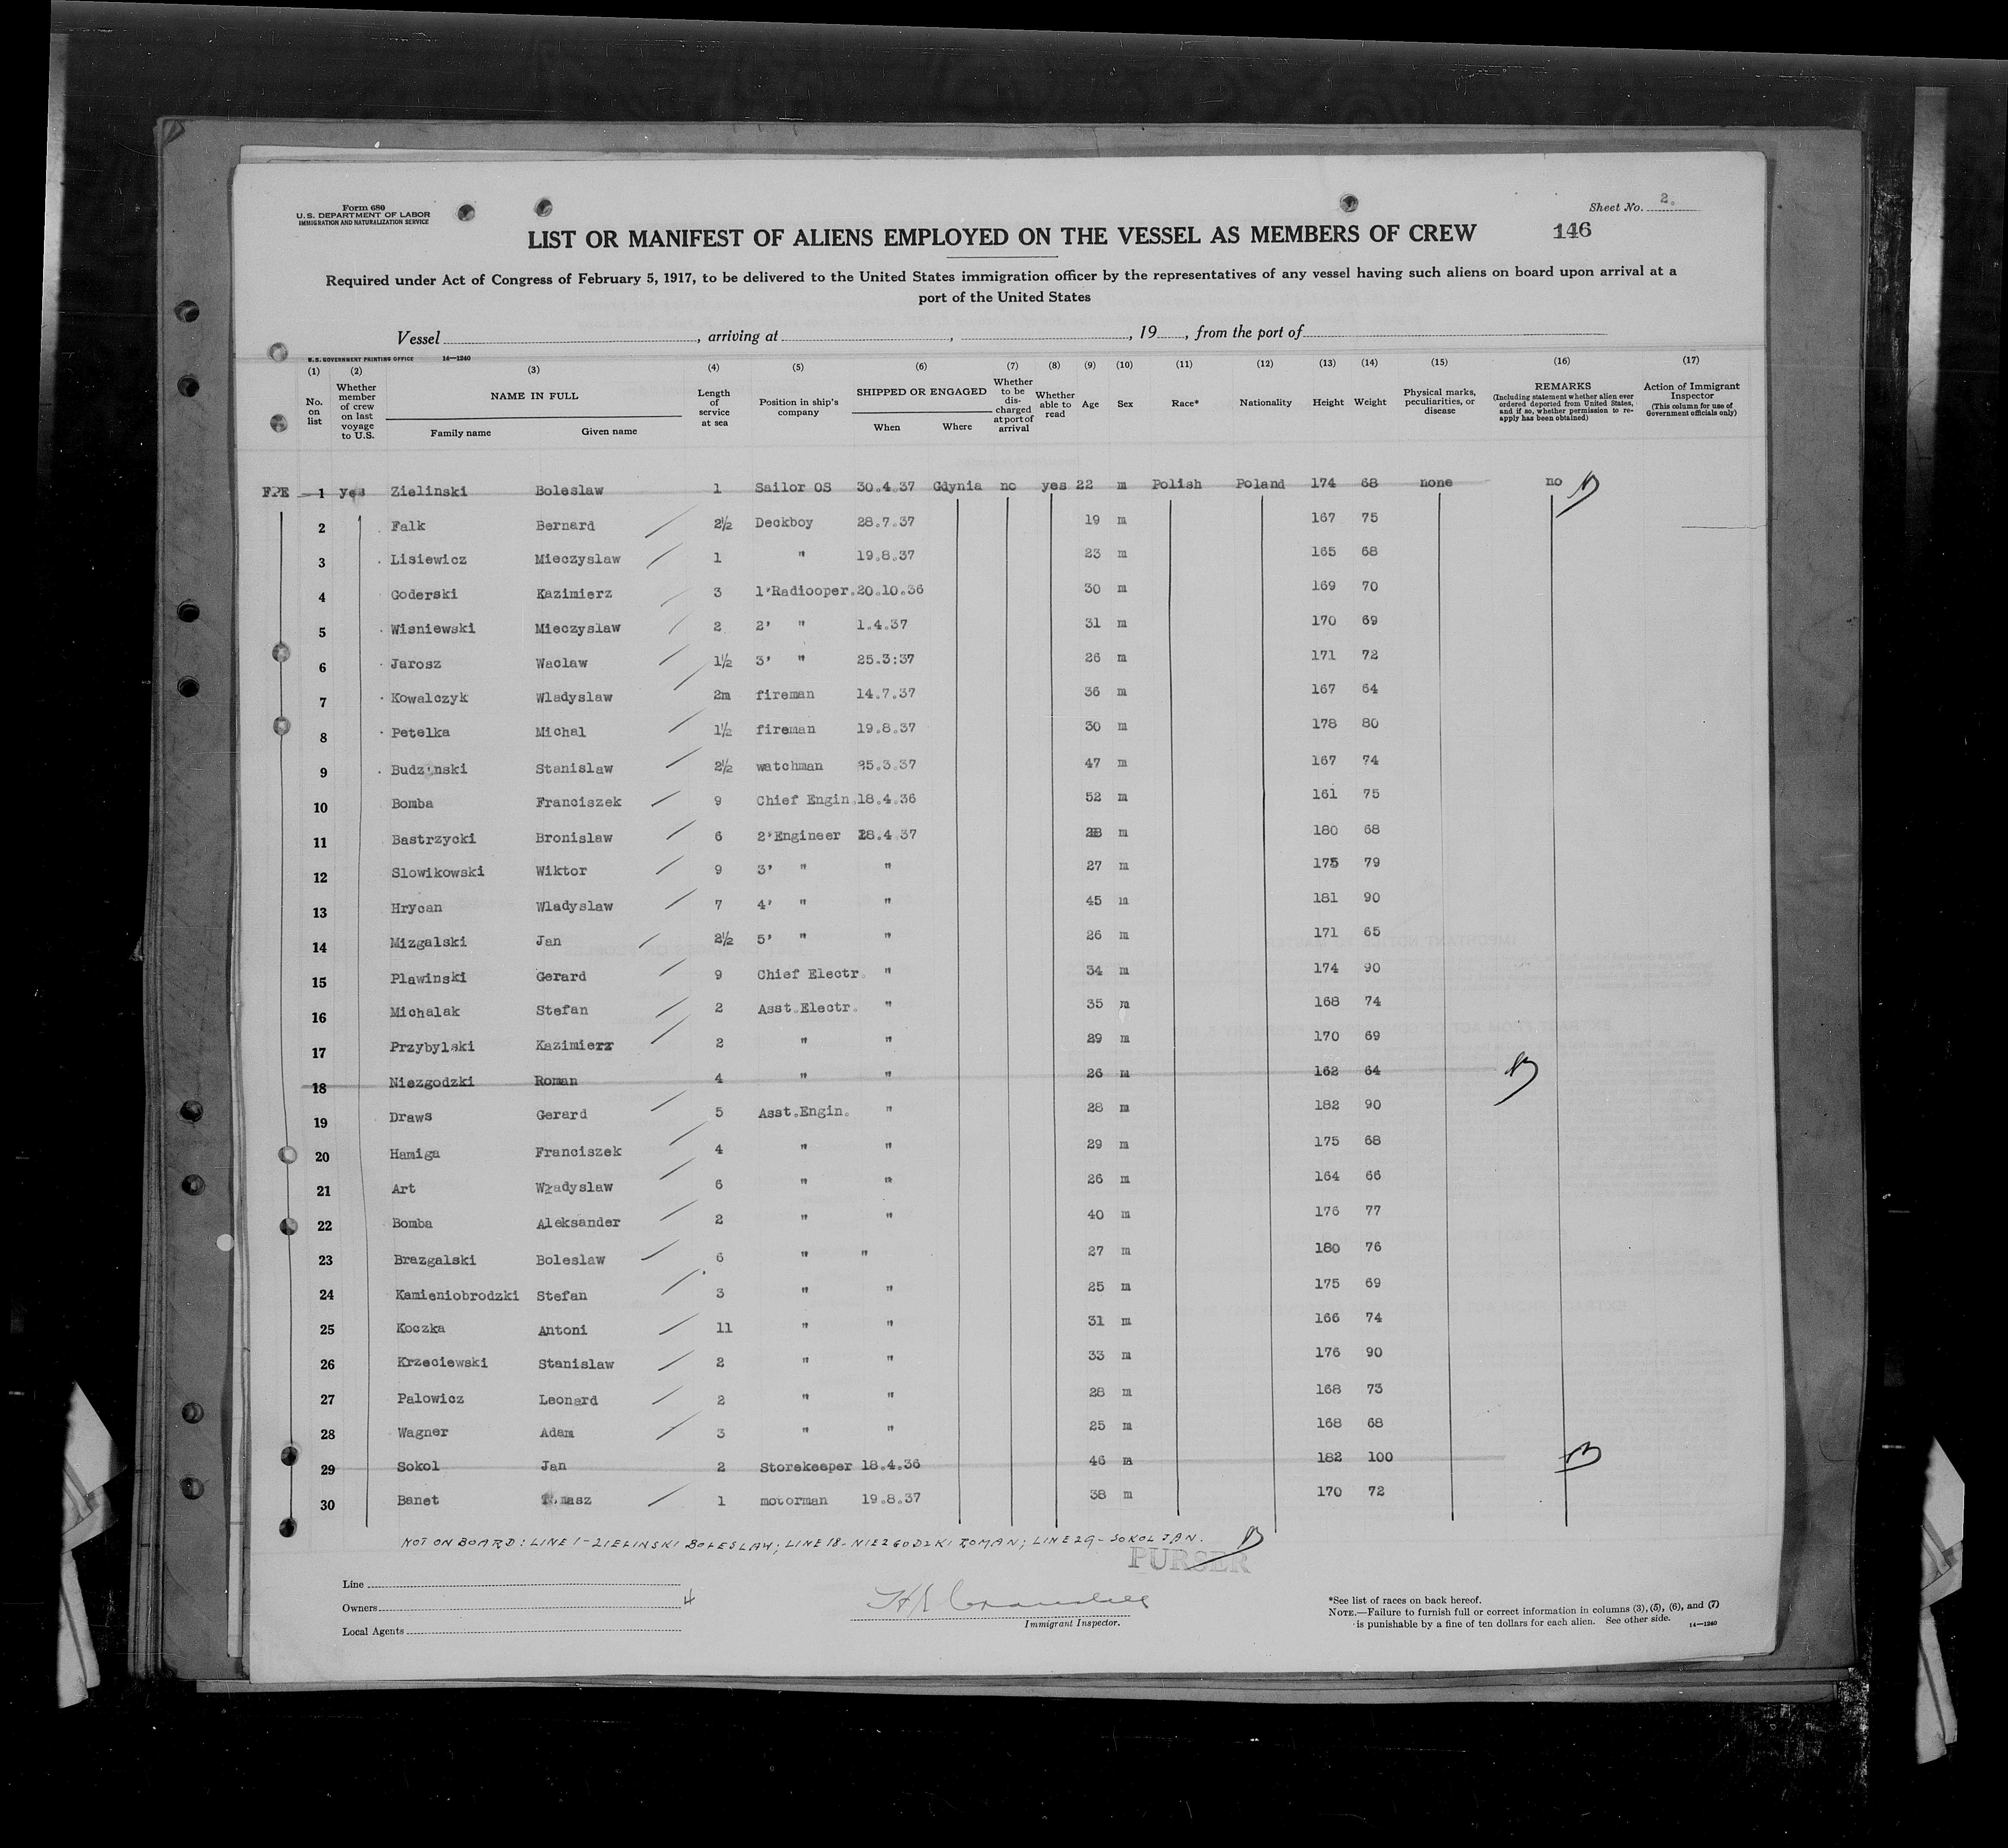 Form 680
U.S. DEPARTMENT OF LABOR
IMMIGRATION AND NATURALIZATION SERVICE
Sheet No. 2.
LIST OR MANIFEST OF ALIENS EMPLOYED ON THE VESSEL AS MEMBERS OF CREW 146
Required under Act of Congress of February 5, 1917, to be delivered to the United States immigration officer by the representatives of any vessel having such aliens on board upon arrival at a
port of the United States
Vessel , arriving at , , 19 , from the port of
U.S. GOVERNMENT PRINTING OFFICE 14—1240
(1) (2) (3) (4) (5) (6) (7) (8) (9) (10) (11) (12) (13) (14) (15) (16) (17)
No. on list
Whether member of crew on last voyage to U.S.
NAME IN FULL
Family name Given name
Length of service at sea
Position in ship's company
SHIPPED OR ENGAGED
When Where
Whether to be discharged at port of arrival
Whether able to read
Age
Sex
Race*
Nationality
Height
Weight
Physical marks, peculiarities, or disease
REMARKS
(Including statement whether alien ever ordered deported from United States, and if so, whether permission to re-apply has been obtained)
Action of Immigrant Inspector
(This column for use of Government officials only)
FPE 1 yes Zielinski Boleslaw 1 Sailor OS 30.4.37 Gdynia no yes 22 m Polish Poland 174 68 none no
2 Falk Bernard 2½ Deckboy 28.7.37 19 m 167 75
3 Lisiewicz Mieczyslaw 1 " 19.8.37 23 m 165 68
4 Goderski Kazimierz 3 1'Radiooper.20.10.36 30 m 169 70
5 Wisniewski Mieczyslaw 2 2' " 1.4.37 31 m 170 69
6 Jarosz Waclaw 1½ 3' " 25.3:37 26 m 171 72
7 Kowalczyk Wladyslaw 2m fireman 14.7.37 36 m 167 64
8 Petelka Michal 1½ fireman 19.8.37 30 m 178 80
9 Budzinski Stanislaw 2½ watchman 25.3.37 47 m 167 74
10 Bomba Franciszek 9 Chief Engin.18.4.36 52 m 161 75
11 Bastrzycki Bronislaw 6 2'Engineer 18.4.37 m 180 68
12 Slowikowski Wiktor 9 3' " " 27 m 175 79
13 Hrycan Wladyslaw 7 4' " " 45 m 181 90
14 Mizgalski Jan 2½ 5' " " 26 m 171 65
15 Plawinski Gerard 9 Chief Electr. " 34 m 174 90
16 Michalak Stefan 2 Asst.Electr. " 35 m 168 74
17 Przybylski Kazimierz 2 " " 29 m 170 69
18 Niezgodzki Roman 4 " " 26 m 162 64
19 Draws Gerard 5 Asst.Engin. " 28 m 182 90
20 Hamiga Franciszek 4 " " 29 m 175 68
21 Art Wladyslaw 6 " " 26 m 164 66
22 Bomba Aleksander 2 " " 40 m 176 77
23 Brazgalski Boleslaw 6 " " 27 m 180 76
24 Kamieniobrodzki Stefan 3 " " 25 m 175 69
25 Koczka Antoni 11 " " 31 m 166 74
26 Krzeciewski Stanislaw 2 " " 33 m 176 90
27 Palowicz Leonard 2 " " 28 m 168 73
28 Wagner Adam 3 " " 25 m 168 68
29 Sokol Jan 2 Storekeeper 18.4.36 46 m 182 100
30 Banet Tomasz 1 motorman 19.8.37 38 m 170 72
NOT ON BOARD: LINE 1-ZIELINSKI BOLESLAW; LINE 18-NIEZGODZKI ROMAN; LINE 29-SOKOL JAN.
PURSER
Line
Owners
Local Agents
4
Immigrant Inspector.
*See list of races on back hereof.
NOTE.—Failure to furnish full or correct information in columns (3), (5), (6), and (7)
is punishable by a fine of ten dollars for each alien. See other side. 14—1240